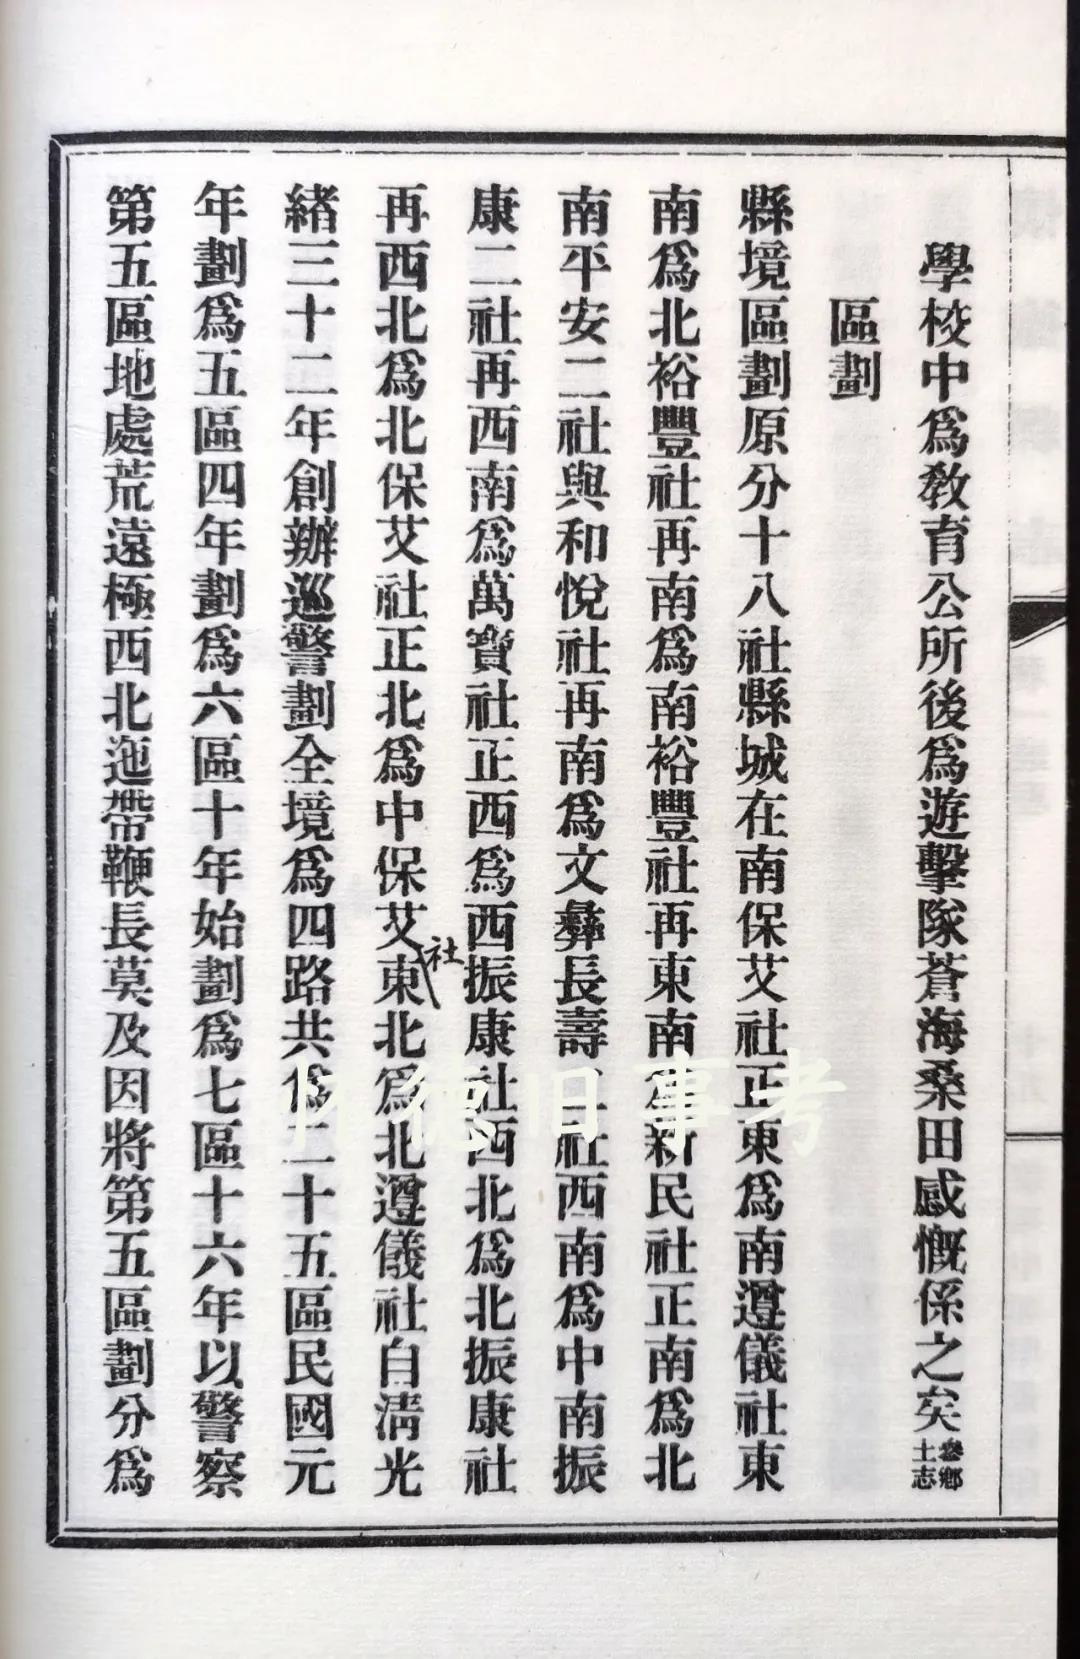 學校中爲教育公所後爲遊擊隊蒼海桑田感慨係之矣參鄉土志
區劃
縣境區劃原分十八社縣城在南保艾社正東爲南遵儀社東
南爲北裕豐社再南爲南裕豐社再東南爲新民社正南爲北
南平安二社與和悅社再南爲文彝長壽二社西南爲中南振
康二社再西南爲萬寶社正西爲西振康社西北爲北振康社
再西北爲北保艾社正北爲中保艾社東北爲北遵儀社自清光
緒三十二年創辦巡警劃全境爲四路共爲二十五區民國元
年劃爲五區四年劃爲六區十年始劃爲七區十六年以警察
第五區地處荒遠極西北迤帶鞭長莫及因將第五區劃分爲
怀德旧事考